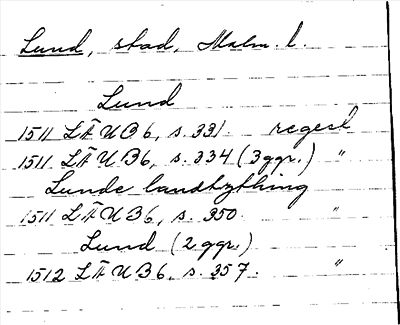 Lund, stad, Malm. l.
Lund
1511 LÄUB6, s. 331 regest
1511 LÄUB6, s. 334 (3 ggr.) "
Lunde landzthing
1511 LÄUB6, s. 350. "
Lund (2 ggr.)
1512 LÄUB6, s. 357. "